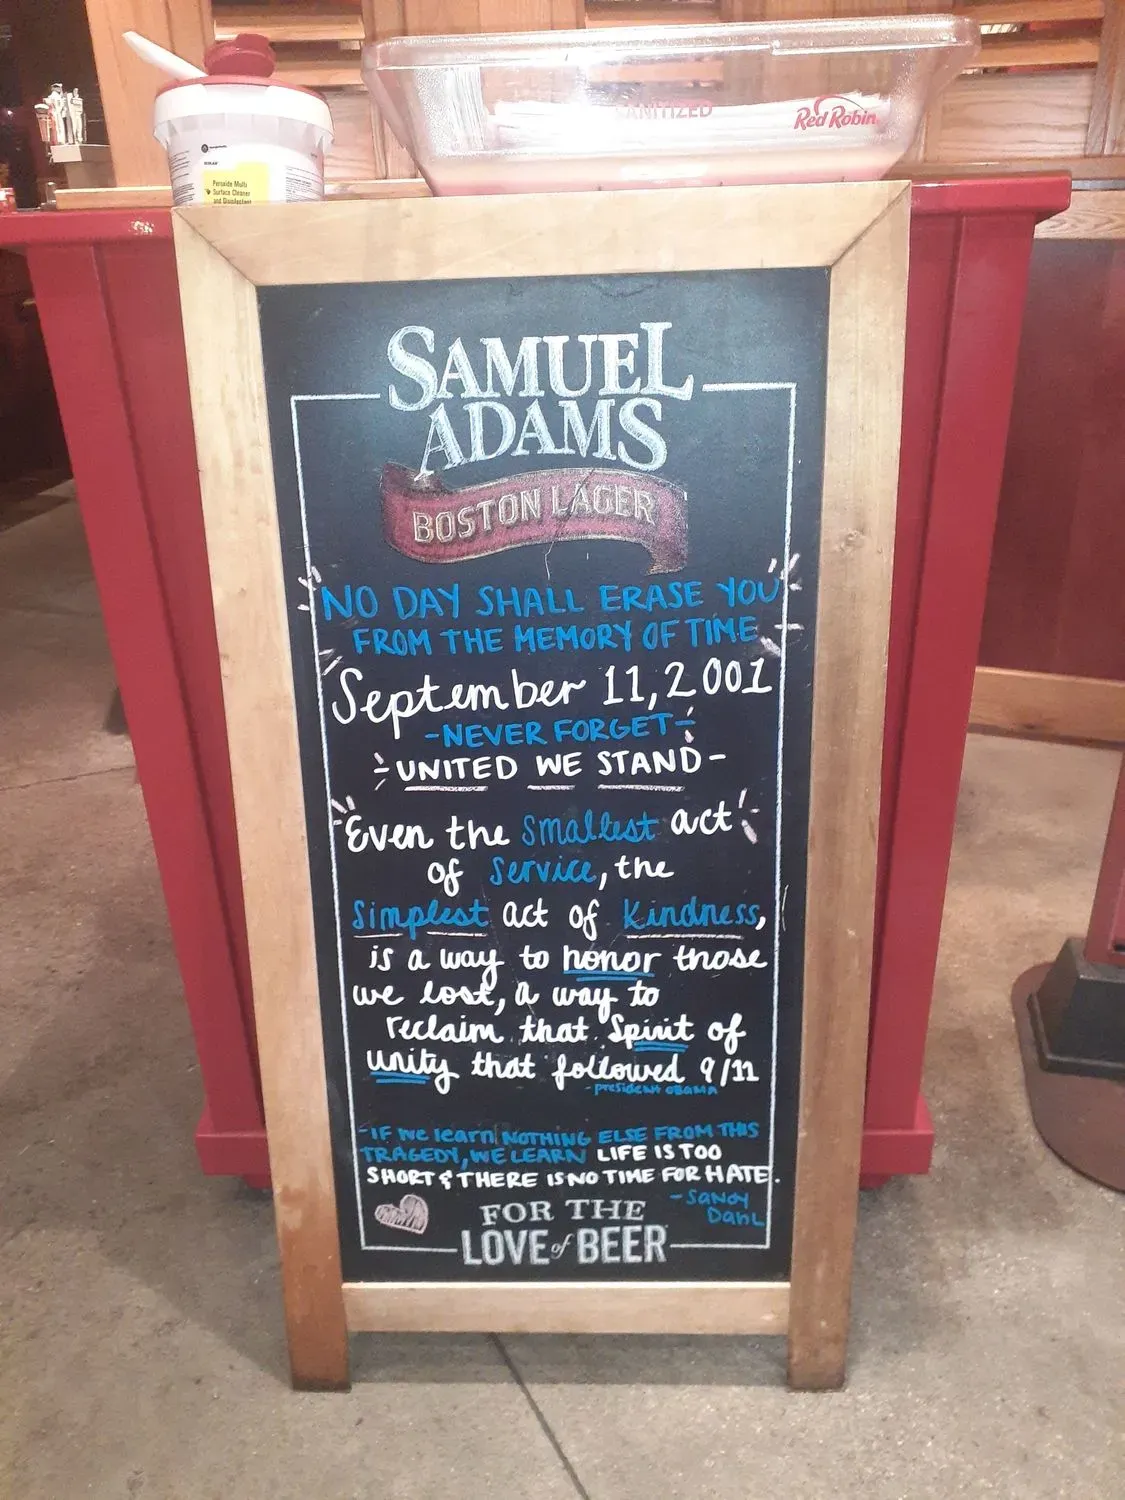 SANITIZED
Red Robin
Peroxide Multi
Surface Cleaner
and Disinfectant
SAMUEL
ADAMS
BOSTON LAGER
NO DAY SHALL ERASE YOU
FROM THE MEMORY OF TIME
September 11, 2001
-NEVER FORGET-
-UNITED WE STAND-
Even the smallest act
of service, the
Simplest act of kindness,
is a way to honor those
we lost, a way to
reclaim that spirit of
unity that followed 9/11
-president obama
-IF we learn NOTHING ELSE FROM THIS
TRAGEDY, WE LEARN LIFE IS TOO
SHORT & THERE IS NO TIME FOR HATE.
-Sandy
Dahl
FOR THE
LOVE of BEER